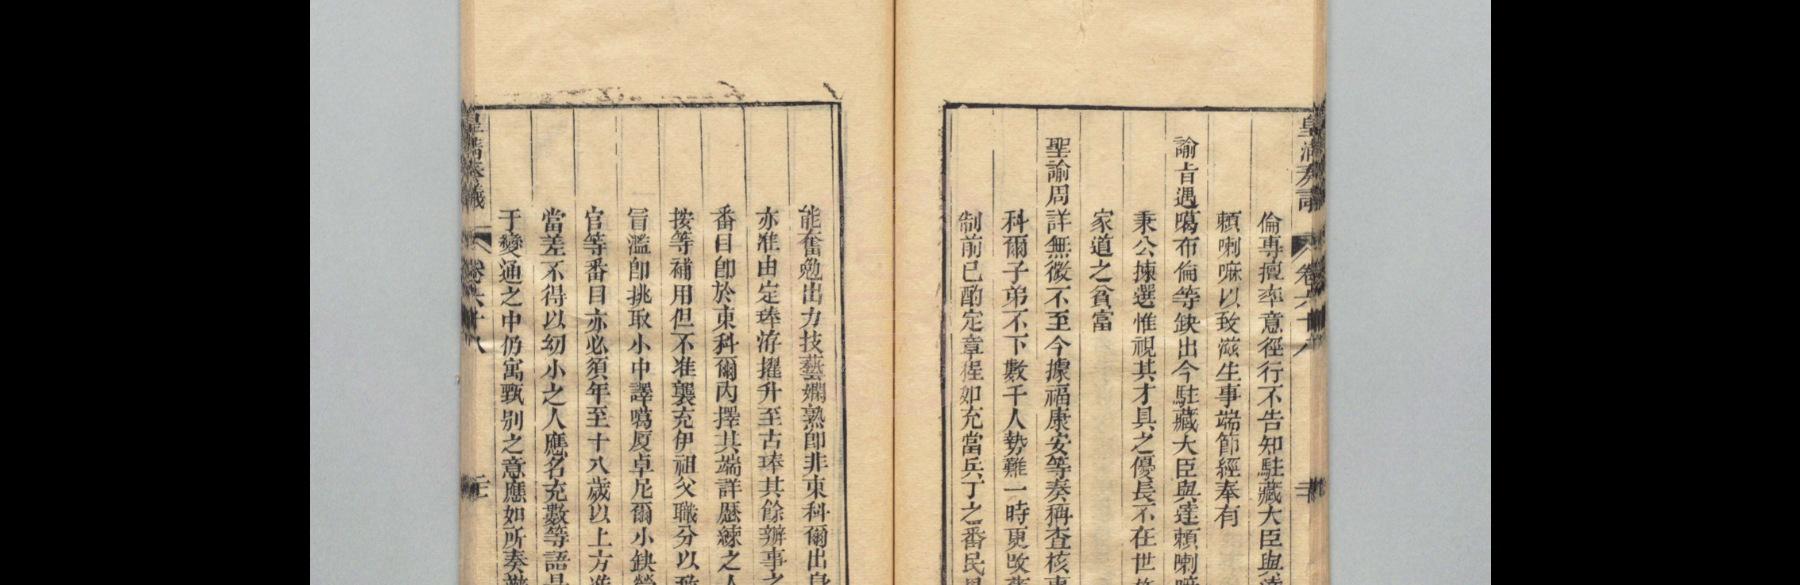 皇清奏議
卷六十八
倫專擅率意徑行不告知駐藏大臣與達
賴喇嘛以致滋生事端節經奉有
諭旨遇噶布倫等缺出今駐藏大臣與達賴喇嘛
秉公揀選惟視其才具之優長不在世
家道之貧富
聖諭周詳無微不至今據福康安等奏稱查核東
科爾子弟不下數千人勢難一時更改
制前已酌定章程如充當兵丁之番民
能奮勉出力技藝嫻熟即非東科爾出身
亦准由定琫洊擢升至古琫其餘辦事之
番目即於東科爾內擇其端詳歷練之人
按等補用但不准襲充伊祖父職分以致
冒濫即挑取小中譯噶厦卓尼爾小缺
官等番目亦必須年至十八歲以上方准
當差不得以幼小之人應名充數等語是
于變通之中仍寓甄別之意應如所奏辦
皇清奏議
卷六十八